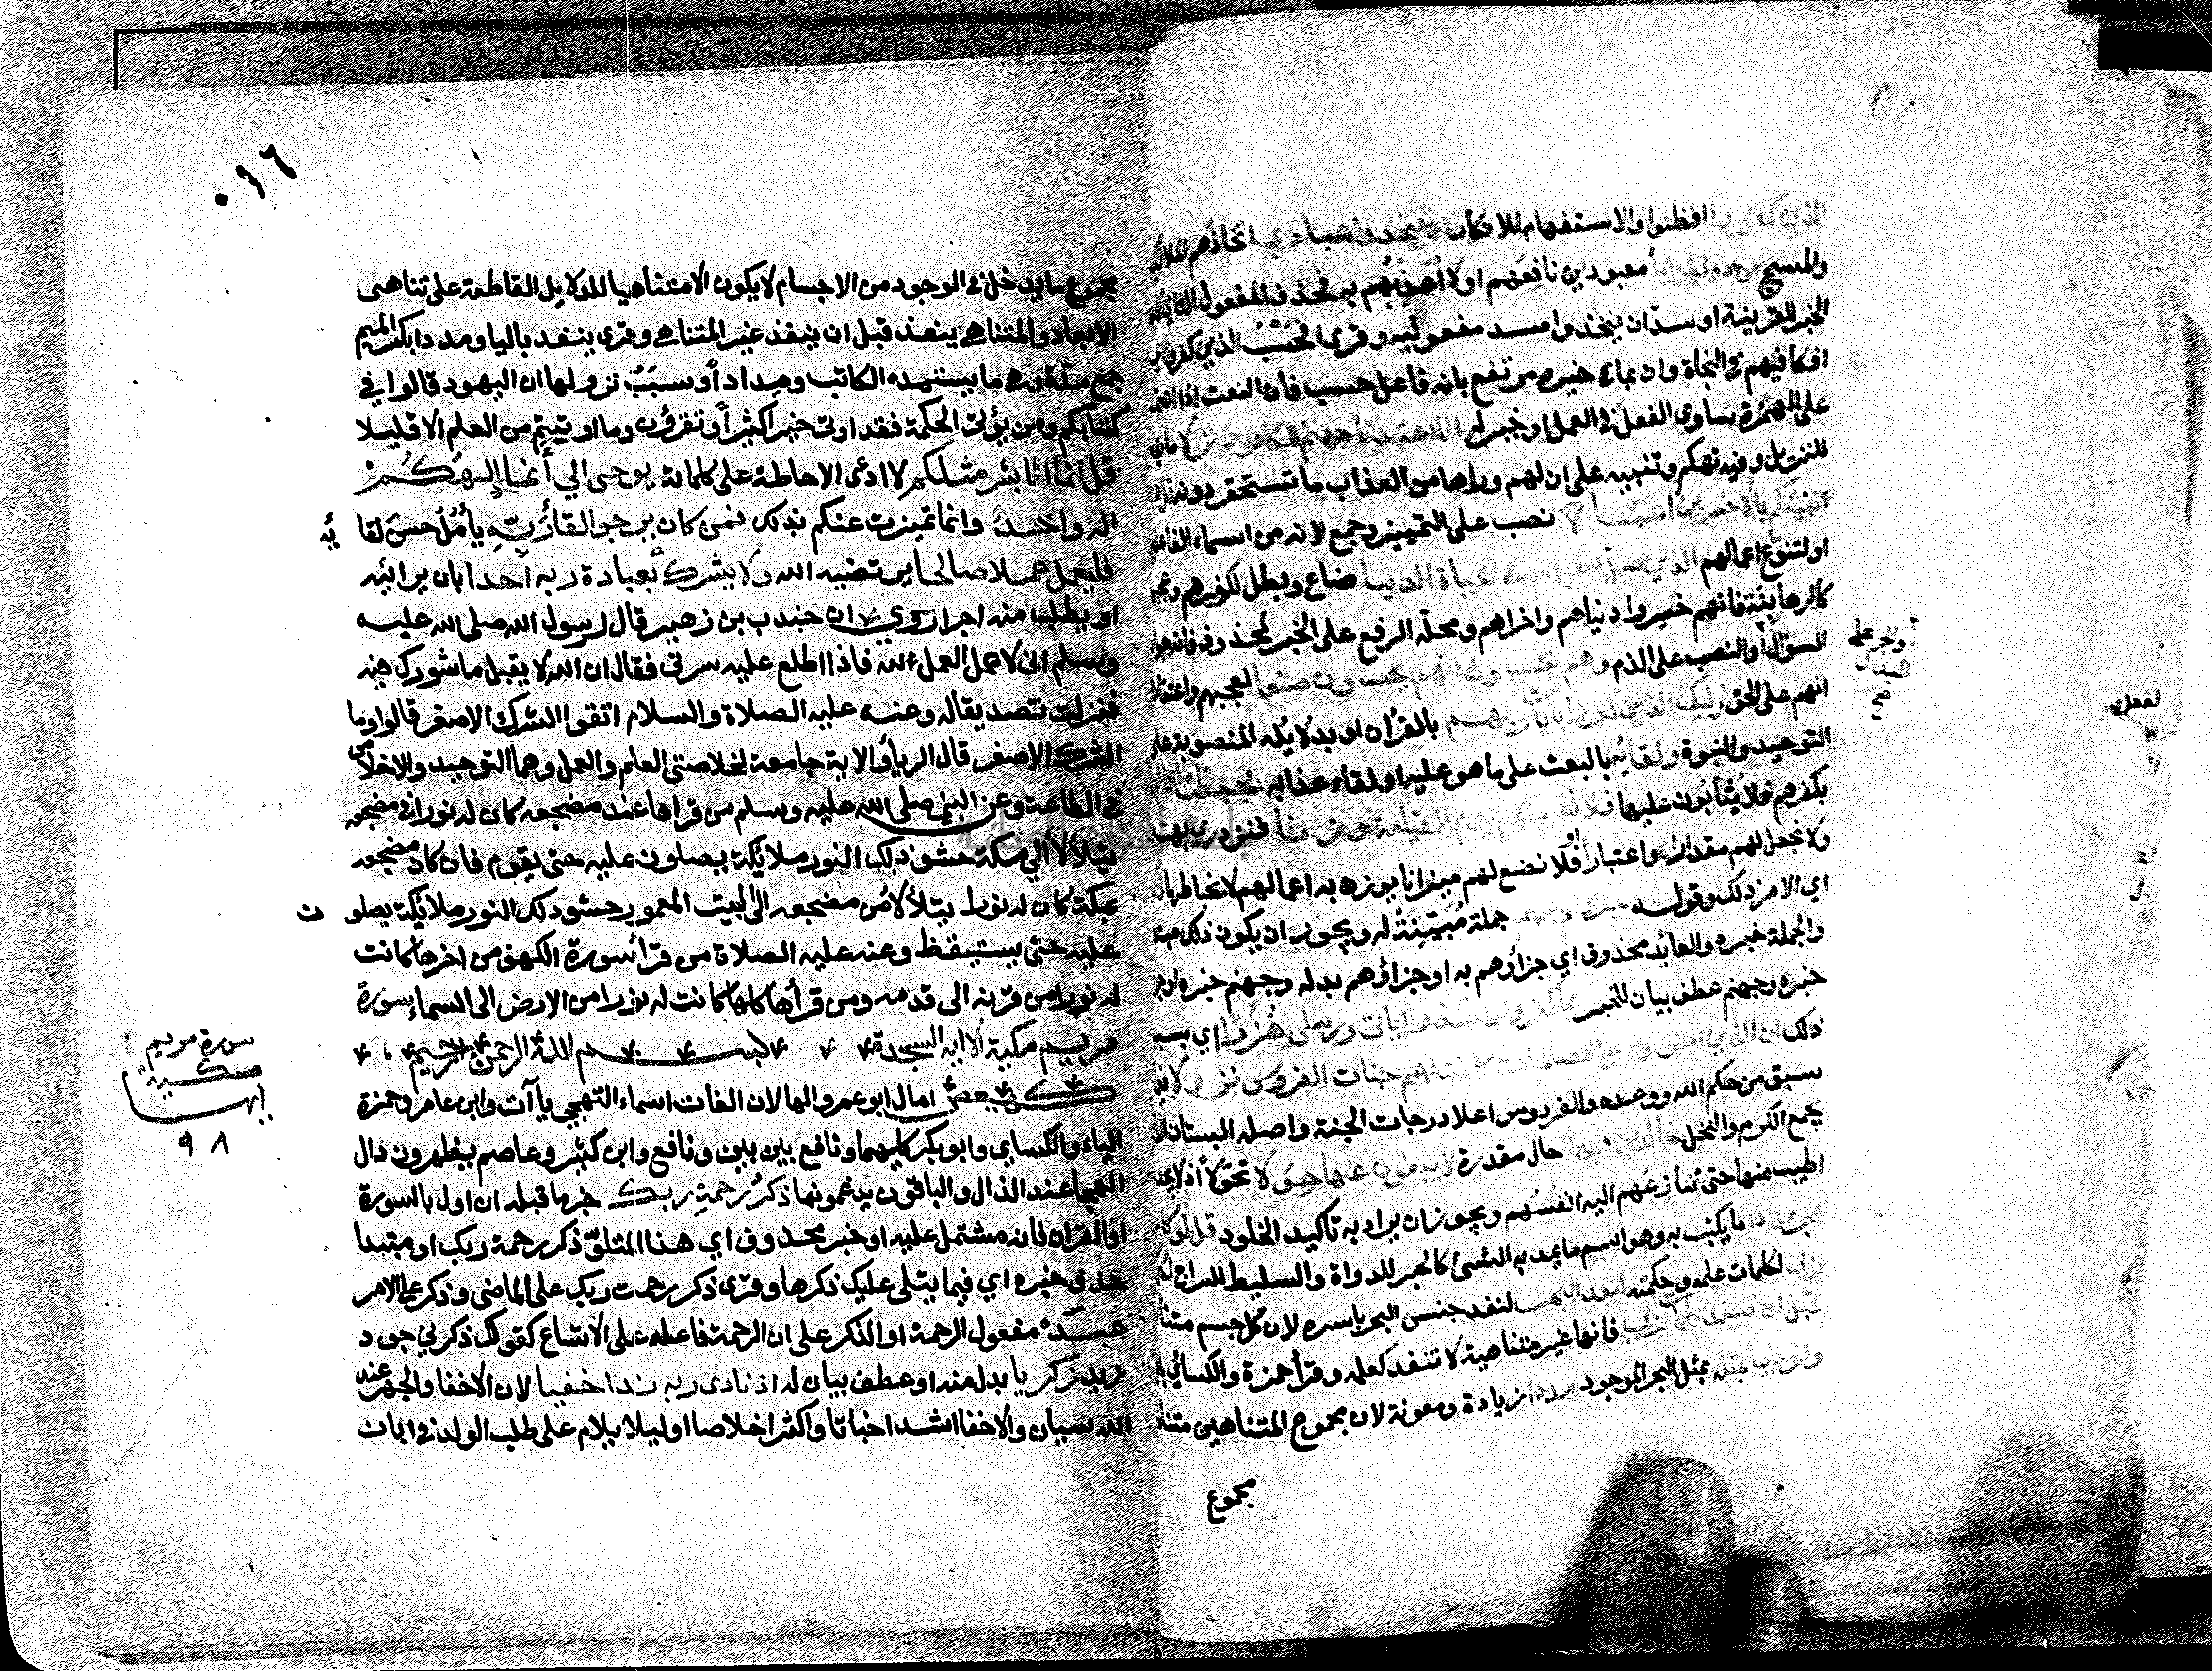 الذين كفروا افظنوا والاستفهام للانكار ان يتخذوا عبادي اتخاذهم الملائكة
والمسيح من دوني اوليا معبودين نافعهم او لا اعذبهم به فحذف المفعول الثاني كما
الخبر للقرينة او سد ان يتخذوا مسد مفعوليه وقرى افحسب الذين كفروا اي
افكافيهم في النجاة وان بما في خبره مرتفع بانه فاعل حسب فان النعت اذا اعتمد
على الهمزة ساوى الفعل في العمل او خبر له انا اعتدنا جهنم للكافرين نزلا ما يقام
للنزيل وفيه تهكم وتنبيه على ان لهم وراها من العذاب ما تستحقر دونه قل
انبيكم بالاخسرين اعمالا نصب على التمييز وجمع لانه من اسماء الفاعلين
او لتنوع اعمالهم الذين ضل سعيهم في الحياة الدنيا ضاع وبطل لكفرهم وعجبهم
كالرهابنة فانهم خسروا دنياهم واخراهم ومحله الرفع على الخبر لمحذوف فانه جواب
السؤال او النصب على الذم وهم يحسبون انهم يحسنون صنعا لعجبهم واعتقادهم
او الجر على
البدل
صح
انهم على الحق اوليك الذين كفروا بايات ربهم بالقران او بدلايله المنصوبة على
التوحيد والنبوة ولقايه بالبعث على ما هو عليه او لقاء عذابه فحبطت اعمالهم
بكفرهم فلا يثابون عليها فلا نقيم لهم يوم القيامة وزنا فنزدري بهم
ولا نجعل لهم مقدارا واعتبارا او فلا نضع لهم ميزانا يوزن به اعمالهم لانحباطها ذلك
اي الامر ذلك وقوله جزاوهم جهنم جملة مبينة له ويجوز ان يكون ذلك مبتدا
والجملة خبره والعايد محذوف اي جزاؤهم به او جزاؤهم بدله وجهنم خبره او جزاؤهم
خبره وجهنم عطف بيان للخبر بما كفروا واتخذوا اياتي ورسلي هزوا اي بسبب
ذلك ان الذين امنوا وعملوا الصالحات كانت لهم جنات الفردوس نزلا فيما
سبق من حكم الله ووعده والفردوس اعلا درجات الجنة واصله البستان الذي
يجمع الكرم والنخل خالدين فيها حال مقدرة لا يبغون عنها حولا تحولا اذ لا يجدون
اطيب منها حتى تنازعهم اليه انفسهم ويجوز ان يراد به تاكيد الخلود قل لو كان
البحر مدادا ما يكتب به وهو اسم ما يمد به الشئ كالحبر للدواة والسليط للسراج لكلمات
ربي لكلمات علمه وحكمته لنفد البحر لنفد جنس البحر باسره لان كل جسم متناه
قبل ان تنفد كلمات ربي فانها غير متناهية لا تنفد كعلمه وقرأ حمزة والكسائي بالياء
ولو جئنا بمثله بمثل البحر الموجود مددا زيادة ومعونة لان مجموع المتناهين متناه بل
مجموع
٠١٦
مجموع ما يدخل في الوجود من الاجسام لا يكون الا متناهيا للدلايل القاطعة على تناهى
الابعاد والمتناهي ينفد قبل ان ينفد غير المتناهي وقرى ينفد باليا ومددا بكسر الميم
جمع مدة وهي ما يستمده الكاتب ومدادا وسبب نزولها ان اليهود قالوا في
كتابكم ومن يؤتى الحكمة فقد اوتى خيرا كثيرا وتقرؤن وما اوتيتم من العلم الا قليلا
قل انما انا بشر مثلكم لا ادعى الاحاطة على كلماته يوحى الي أنما إلهكم
اله واحد وانما تميزت عنكم بذلك فمن كان يرجو القاء ربه يأمل حسن لقايه
فليعمل عملا صالحا يرتضيه الله ولا يشرك بعبادة ربه احدا بان يرائيه
او يطلب منه اجرا روي ان جندب بن زهير قال لرسول الله صلى الله عليه
وسلم انى لاعمل العمل لله فاذا اطلع عليه سرنى فقال ان الله لا يقبل ما شورك فيه
فنزلت تصديقا له وعنه عليه الصلاة والسلام اتقوا الشرك الاصغر قالوا وما
الشرك الاصغر قال الرياء والاية جامعة لخلاصتى العلم والعمل وهما التوحيد والاخلاص
في الطاعة وعن النبي صلى الله عليه وسلم من قراها عند مضجعه كان له نورا في مضجعه
يتلألأ الي مكة حشو ذلك النور ملائكة يصلون عليه حتى يقوم فان كان مضجعه
بمكة كان له نورا يتلألأ من مضجعه الى البيت المعمور حشو ذلك النور ملائكة يصلون
عليه حتى يستيقظ وعنه عليه الصلاة من قرأ سورة الكهف من اخرها كانت
له نورا من قرنه الى قدمه ومن قرأها كلها كانت له نورا من الارض الى السماء سورة
مريم مكية الا اية السجدة بسم الله الرحمن الرحيم
سورة مريم
مكية
ايها
٩٨
كهيعص امال ابو عمرو الها لان الفات اسماء التهجي يا آت وابن عامر وحمزة
الياء والكساي وابو بكر كليهما ونافع بين بين ونافع وابن كثير وعاصم يظهرون دال
الهجا عند الذال والباقون يدغمونها ذكر رحمة ربك خبر ما قبله ان اول بالسورة
او القران فانه مشتمل عليه او خبر محذوف اي هذا المتلو ذكر رحمة ربك او مبتدا
حذف خبره اي فيما يتلى عليك ذكرها وقرى ذكر رحمت ربك على الماضى وذكر على الامر
عبده مفعول الرحمة او الذكر على ان الرحمة فاعله على الاتساع كقولك ذكرني جود
زيد زكريا بدل منه او عطف بيان له اذ نادى ربه ندا خفيا لان الاخفا والجهر عند
الله سيان والاخفا اشد اخباتا واكثر اخلاصا او ليلا يلام على طلب الولد في ابان